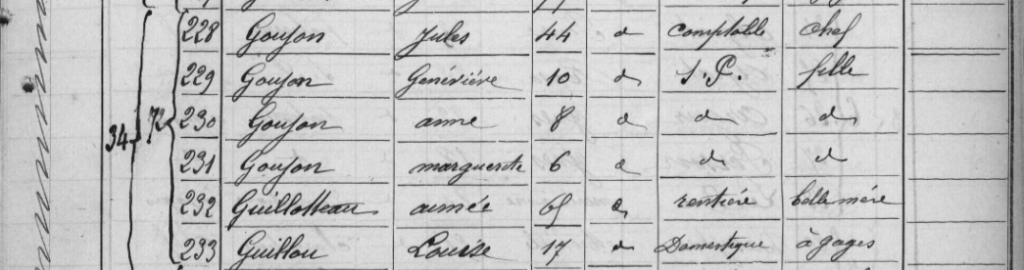 228 Goujon Jules 44 d comptable chef
229 Goujon Geneviève 10 d s. P. fille
34 72 230 Goujon anne 8 d d d
231 Goujon marguerite 6 d d d
232 Guillotteau aimée 65 d rentière belle mère
233 Guillou Louise 17 d Domestique à gages